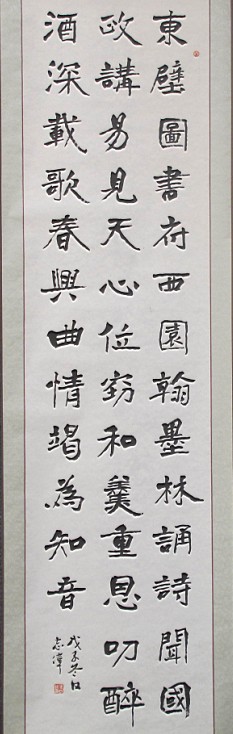 東壁圖書府西園翰墨林誦詩聞國
政講易見天心位窃和羹重恩叨醉
酒深載歌春興曲情竭為知音
戊子冬日